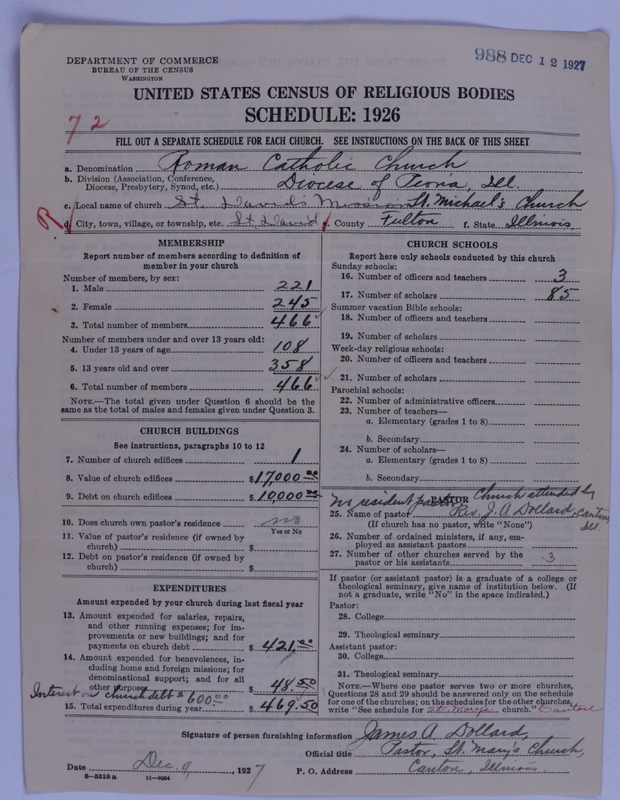 DEPARTMENT OF COMMERCE
BUREAU OF THE CENSUS
WASHINGTON
988 DEC 12 1927
UNITED STATES CENSUS OF RELIGIOUS BODIES
SCHEDULE: 1926
72
FILL OUT A SEPARATE SCHEDULE FOR EACH CHURCH. SEE INSTRUCTIONS ON THE BACK OF THIS SHEET
a. Denomination Roman Catholic Church
b. Division (Association, Conference, Diocese, Presbytery, Synod, etc.) Diocese of Peoria, Ill.
c. Local name of church St. David's Mission St. Michael's Church
R
d. City, town, village, or township, etc. St David e. County Fulton f. State Illinois
MEMBERSHIP
Report number of members according to definition of
member in your church
Number of members, by sex:
1. Male 221
2. Female 245
3. Total number of members 466
Number of members under and over 13 years old:
4. Under 13 years of age 108
5. 13 years old and over 358
6. Total number of members 466
NOTE.—The total given under Question 6 should be the
same as the total of males and females given under Question 3.
CHURCH BUILDINGS
See instructions, paragraphs 10 to 12
7. Number of church edifices 1
8. Value of church edifices $17,000.00
9. Debt on church edifices $10,000
10. Does church own pastor's residence no
Yes or No
11. Value of pastor's residence (if owned by
church) $
12. Debt on pastor's residence (if owned by
church) $
EXPENDITURES
Amount expended by your church during last fiscal year
13. Amount expended for salaries, repairs,
and other running expenses; for im-
provements or new buildings; and for
payments on church debt $ 421.00
14. Amount expended for benevolences, in-
cluding home and foreign missions; for
denominational support; and for all
other purposes $ 48.50
Interest on church debt $ 600.00
15. Total expenditures during year $ 469.50
CHURCH SCHOOLS
Report here only schools conducted by this church
Sunday schools:
16. Number of officers and teachers 3
17. Number of scholars 85
Summer vacation Bible schools:
18. Number of officers and teachers
19. Number of scholars
Week-day religious schools:
20. Number of officers and teachers
21. Number of scholars
Parochial schools:
22. Number of administrative officers
23. Number of teachers—
a. Elementary (grades 1 to 8)
b. Secondary
24. Number of scholars—
a. Elementary (grades 1 to 8)
b. Secondary
PASTOR
No resident pastor Church attended by
25. Name of pastor Rev. J. A Dollard, Canton, Ill.
(If church has no pastor, write "None")
26. Number of ordained ministers, if any, em-
ployed as assistant pastors
27. Number of other churches served by the
pastor or his assistants 3
If pastor (or assistant pastor) is a graduate of a college or
theological seminary, give name of institution below. (If
not a graduate, write "No" in the space indicated.)
Pastor:
28. College
29. Theological seminary
Assistant pastor:
30. College
31. Theological seminary
NOTE.—Where one pastor serves two or more churches,
Questions 28 and 29 should be answered only on the schedule
for one of the churches; on the schedules for the other churches,
write "See schedule for St. Mary's church." Canton
Signature of person furnishing information James A Dollard,
Official title Pastor, St. Mary's Church,
Date Dec. 9, 1927 P. O. Address Canton, Illinois.
8—5318a 11—9034